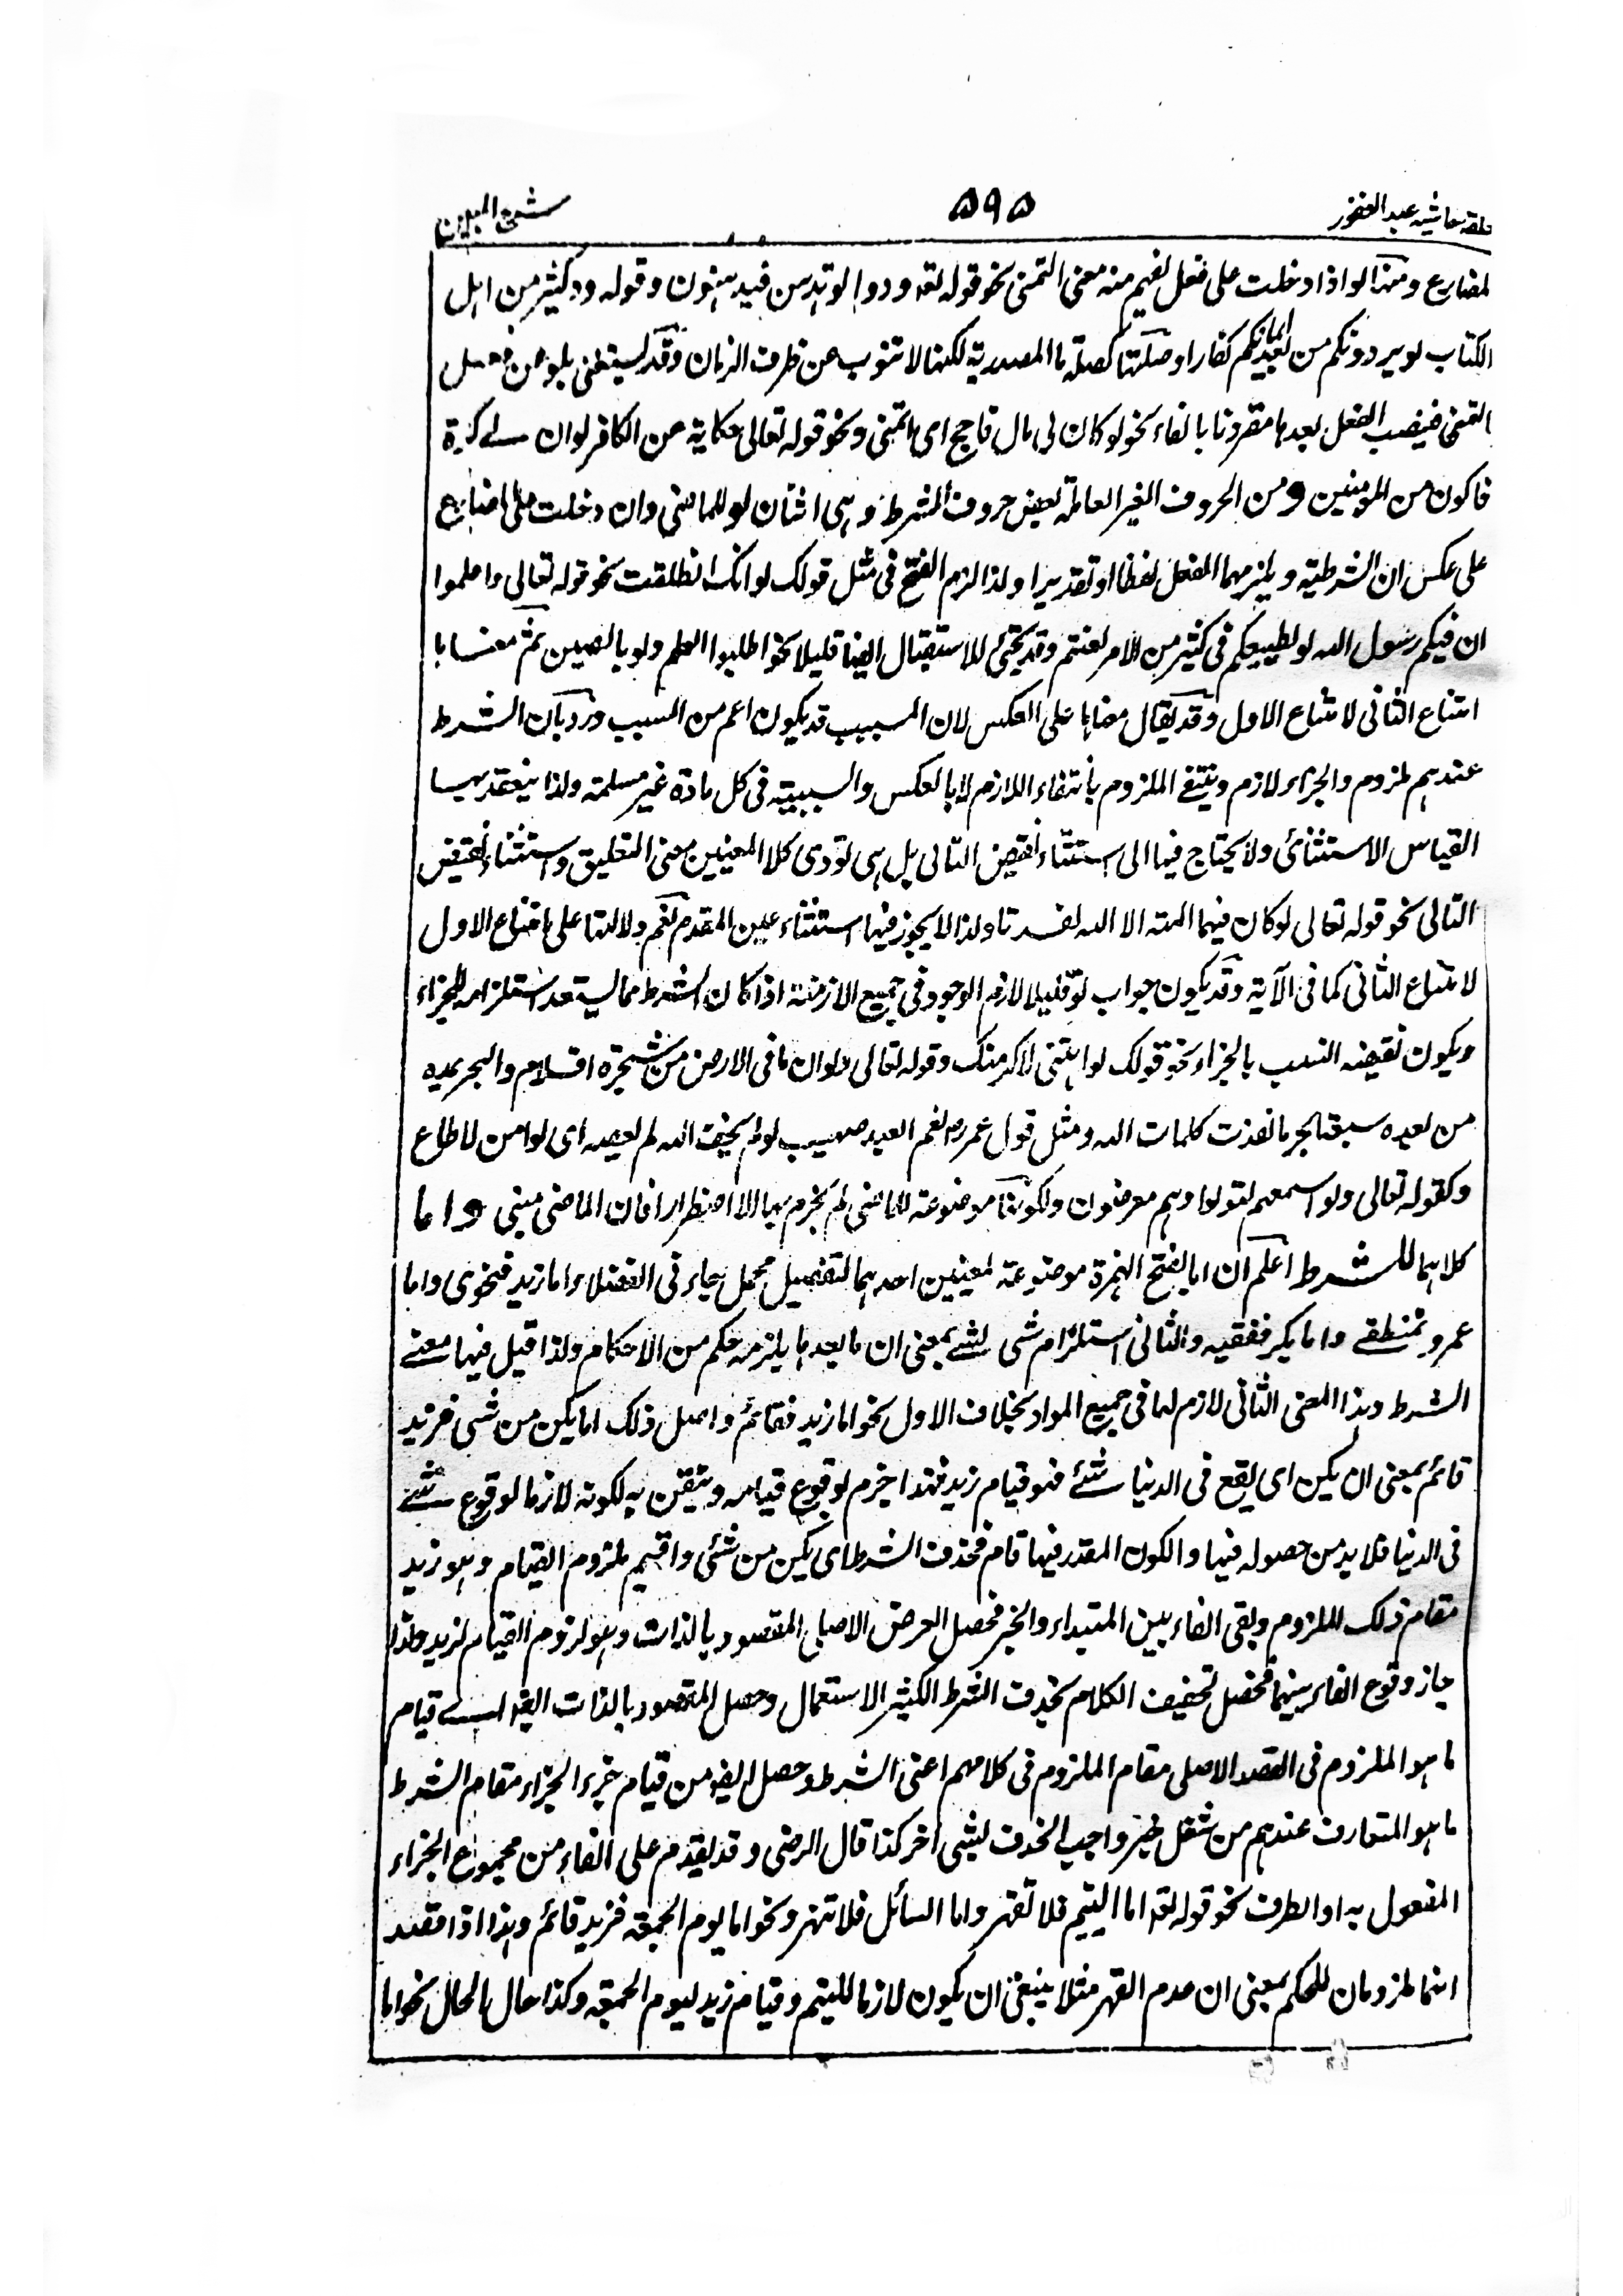 حاشيه عبد الغفور ۵۹۵
لمضارع ومنها لو اذا دخلت على فعل يفهم منه معنى التمنى نحو قوله تعه ودوا لو تدهن فيدهنون وقوله ود كثير من اهل
الكتاب لو يردونكم من بعد ايمانكم كفارا وصلتها كصلة ما المصدرية لكنها لا تنوب عن ظرف الزمان وقد يستغنى بلو عن فعل
التمنى فينصب الفعل بعدها مقرونا بالفاء نحو لو كان لى مال فاحج اى اتمنى ونحو قوله تعالى حكاية عن الكافر لو ان لى كرة
فاكون من المؤمنين ومن الحروف الغير العاملة بعض حروف الشرط وهى اثنان لو للماضى وان دخلت على المضارع
على عكس ان الشرطية ويلزمهما الفعل لفظا او تقديرا ولذا لزم الفتح فى مثل قولك لو انك انطلقت نحو قوله تعالى واعلموا
ان فيكم رسول الله لو يطيعكم فى كثير من الامر لعنتم وقد تجئ للاستقبال ايضا قليلا نحو اطلبوا العلم ولو بالصين ثم معناها
امتناع الثانى لامتناع الاول وقد يقال معناها على العكس لان المسبب قد يكون اعم من السبب ورد بان الشرط
عندهم ملزوم والجزاء لازم وينتفى الملزوم بانتفاء اللازم لا بالعكس والسببية فى كل مادة غير مسلمة ولذا ينعقد بها
القياس الاستثنائى ولا يحتاج فيها الى استثناء نقيض التالى بل هى تؤدى كلا المعنيين معنى التعليق واستثناء نقيض
التالى نحو قوله تعالى لو كان فيهما الهة الا الله لفسدتا ولذا لا يجوز فيها استثناء عين المقدم نعم دلالتها على امتناع الاول
لامتناع الثانى كما فى الآية وقد يكون جواب لو قليلا لازم الوجود فى جميع الازمنة اذا كان الشرط مما يستبعد استلزامه للجزاء
ويكون نقيضه انسب بالجزاء نحو قولك لو اهنتنى لاكرمتك وقوله تعالى ولو ان ما فى الارض من شجرة اقلام والبحر يمده
من بعده سبعة ابحر ما نفدت كلمات الله ومثل قول عمر رض نعم العبد صهيب لو لم يخف الله لم يعصه اى لو امن لاطاع
وكقوله تعالى ولو اسمعهم لتولوا وهم معرضون ولكونها موضوعة للماضى لم يجزم بها الا اضطرارا فان الماضى مبنى واما
كلاهما للشرط اعلم ان اما بفتح الهمزة موضوعة لمعنيين احدهما لتفصيل مجمل جاء فى الفضلاء اما زيد فنحوى واما
عمرو فمنطقى واما بكر ففقيه والثانى استلزام شى لشئ بمعنى ان ما بعدها يلزمه حكم من الاحكام ولذا قيل فيها معنى
الشرط وهذا المعنى الثانى لازم لها فى جميع المواد بخلاف الاول نحو اما زيد فقائم واصل ذلك اما يكن من شى فزيد
قائم بمعنى ان يكن اى يقع فى الدنيا شئ فهو قيام زيد فهذا جزم لوقوع قيامه وتيقن به لكونه لازما لوقوع شئ
فى الدنيا فلا بد من حصوله فيها والكون المقدر فيها تام فحذف الشرط اى يكن من شئ واقيم ملزوم القيام وهو زيد
مقام ذلك الملزوم وبقى الفاء بين المبتداء والخبر فحصل الغرض الاصلى المقصود بالذات وهو لزوم القيام لزيد ولذا
جاز وقوع الفاء بينهما فحصل تخفيف الكلام بحذف الشرط الكثير الاستعمال وحصل المقصود بالذات ايضا اى قيام
ما هو الملزوم فى القصد الاصلى مقام الملزوم فى كلامهم اعنى الشرط وحصل ايضا من قيام جزء الجزاء مقام الشرط
ما هو المتعارف عندهم من شغل حيز واجب الحذف لشئ آخر كذا قال الرضى وقد يقدم على الفاء من مجموع الجزاء
المفعول به او الظرف نحو قوله تعه اما اليتيم فلا تقهر واما السائل فلا تنهر ونحو اما يوم الجمعة فزيد قائم وهذا اذا قصد
انهما ملزومان للحكم بمعنى ان عدم القهر مثلا ينبغى ان يكون لازما لليتيم وقيام زيد ليوم الجمعة وكذا حال الحال نحو اما